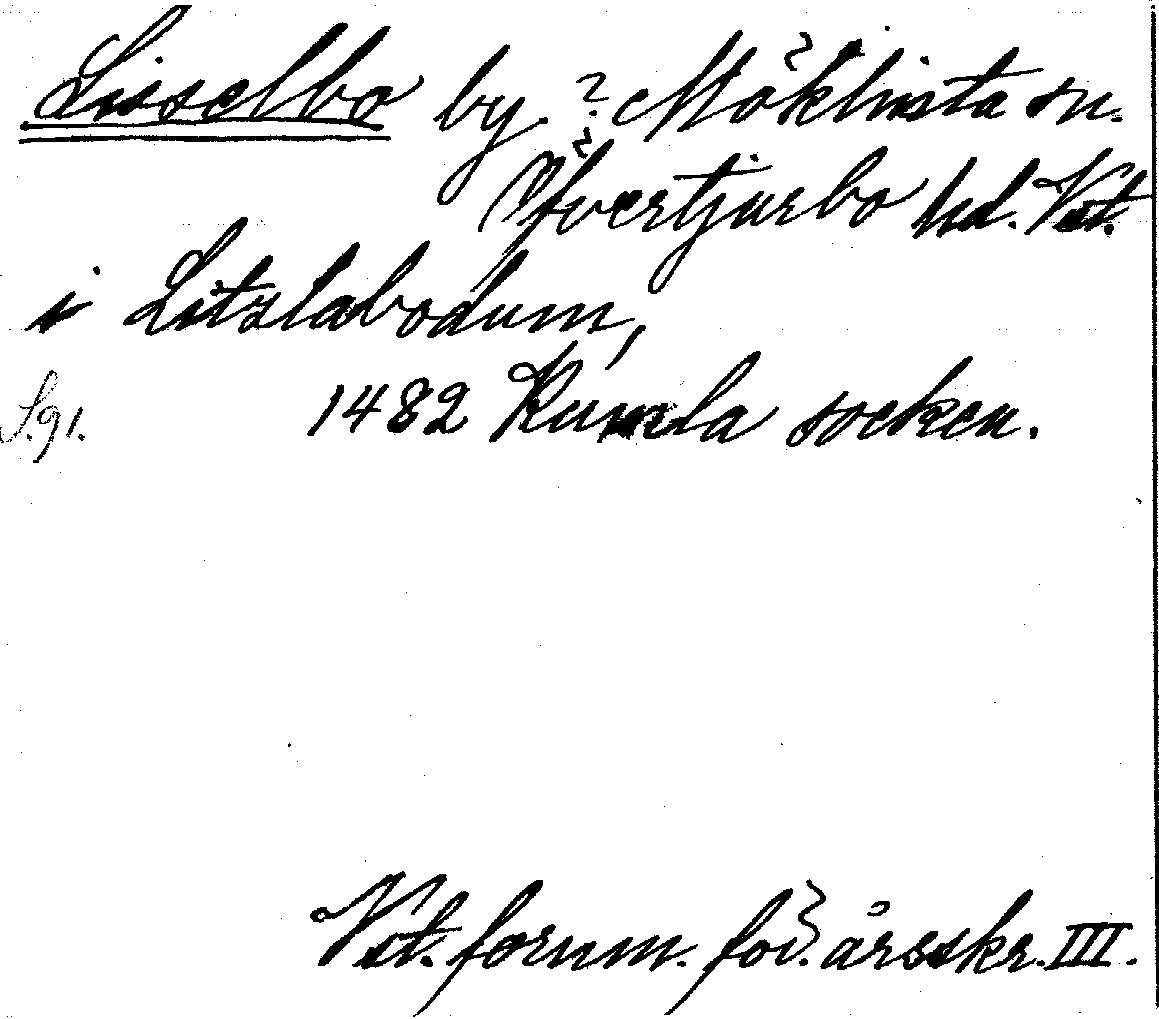 Lisselbo by. ? Möklinta sn.
Öfvertjurbo hd. Vst.
i Litzlabodum,
S. 91. 1482 Kumla socken.
Vst. fornm. för. årsskr. III.